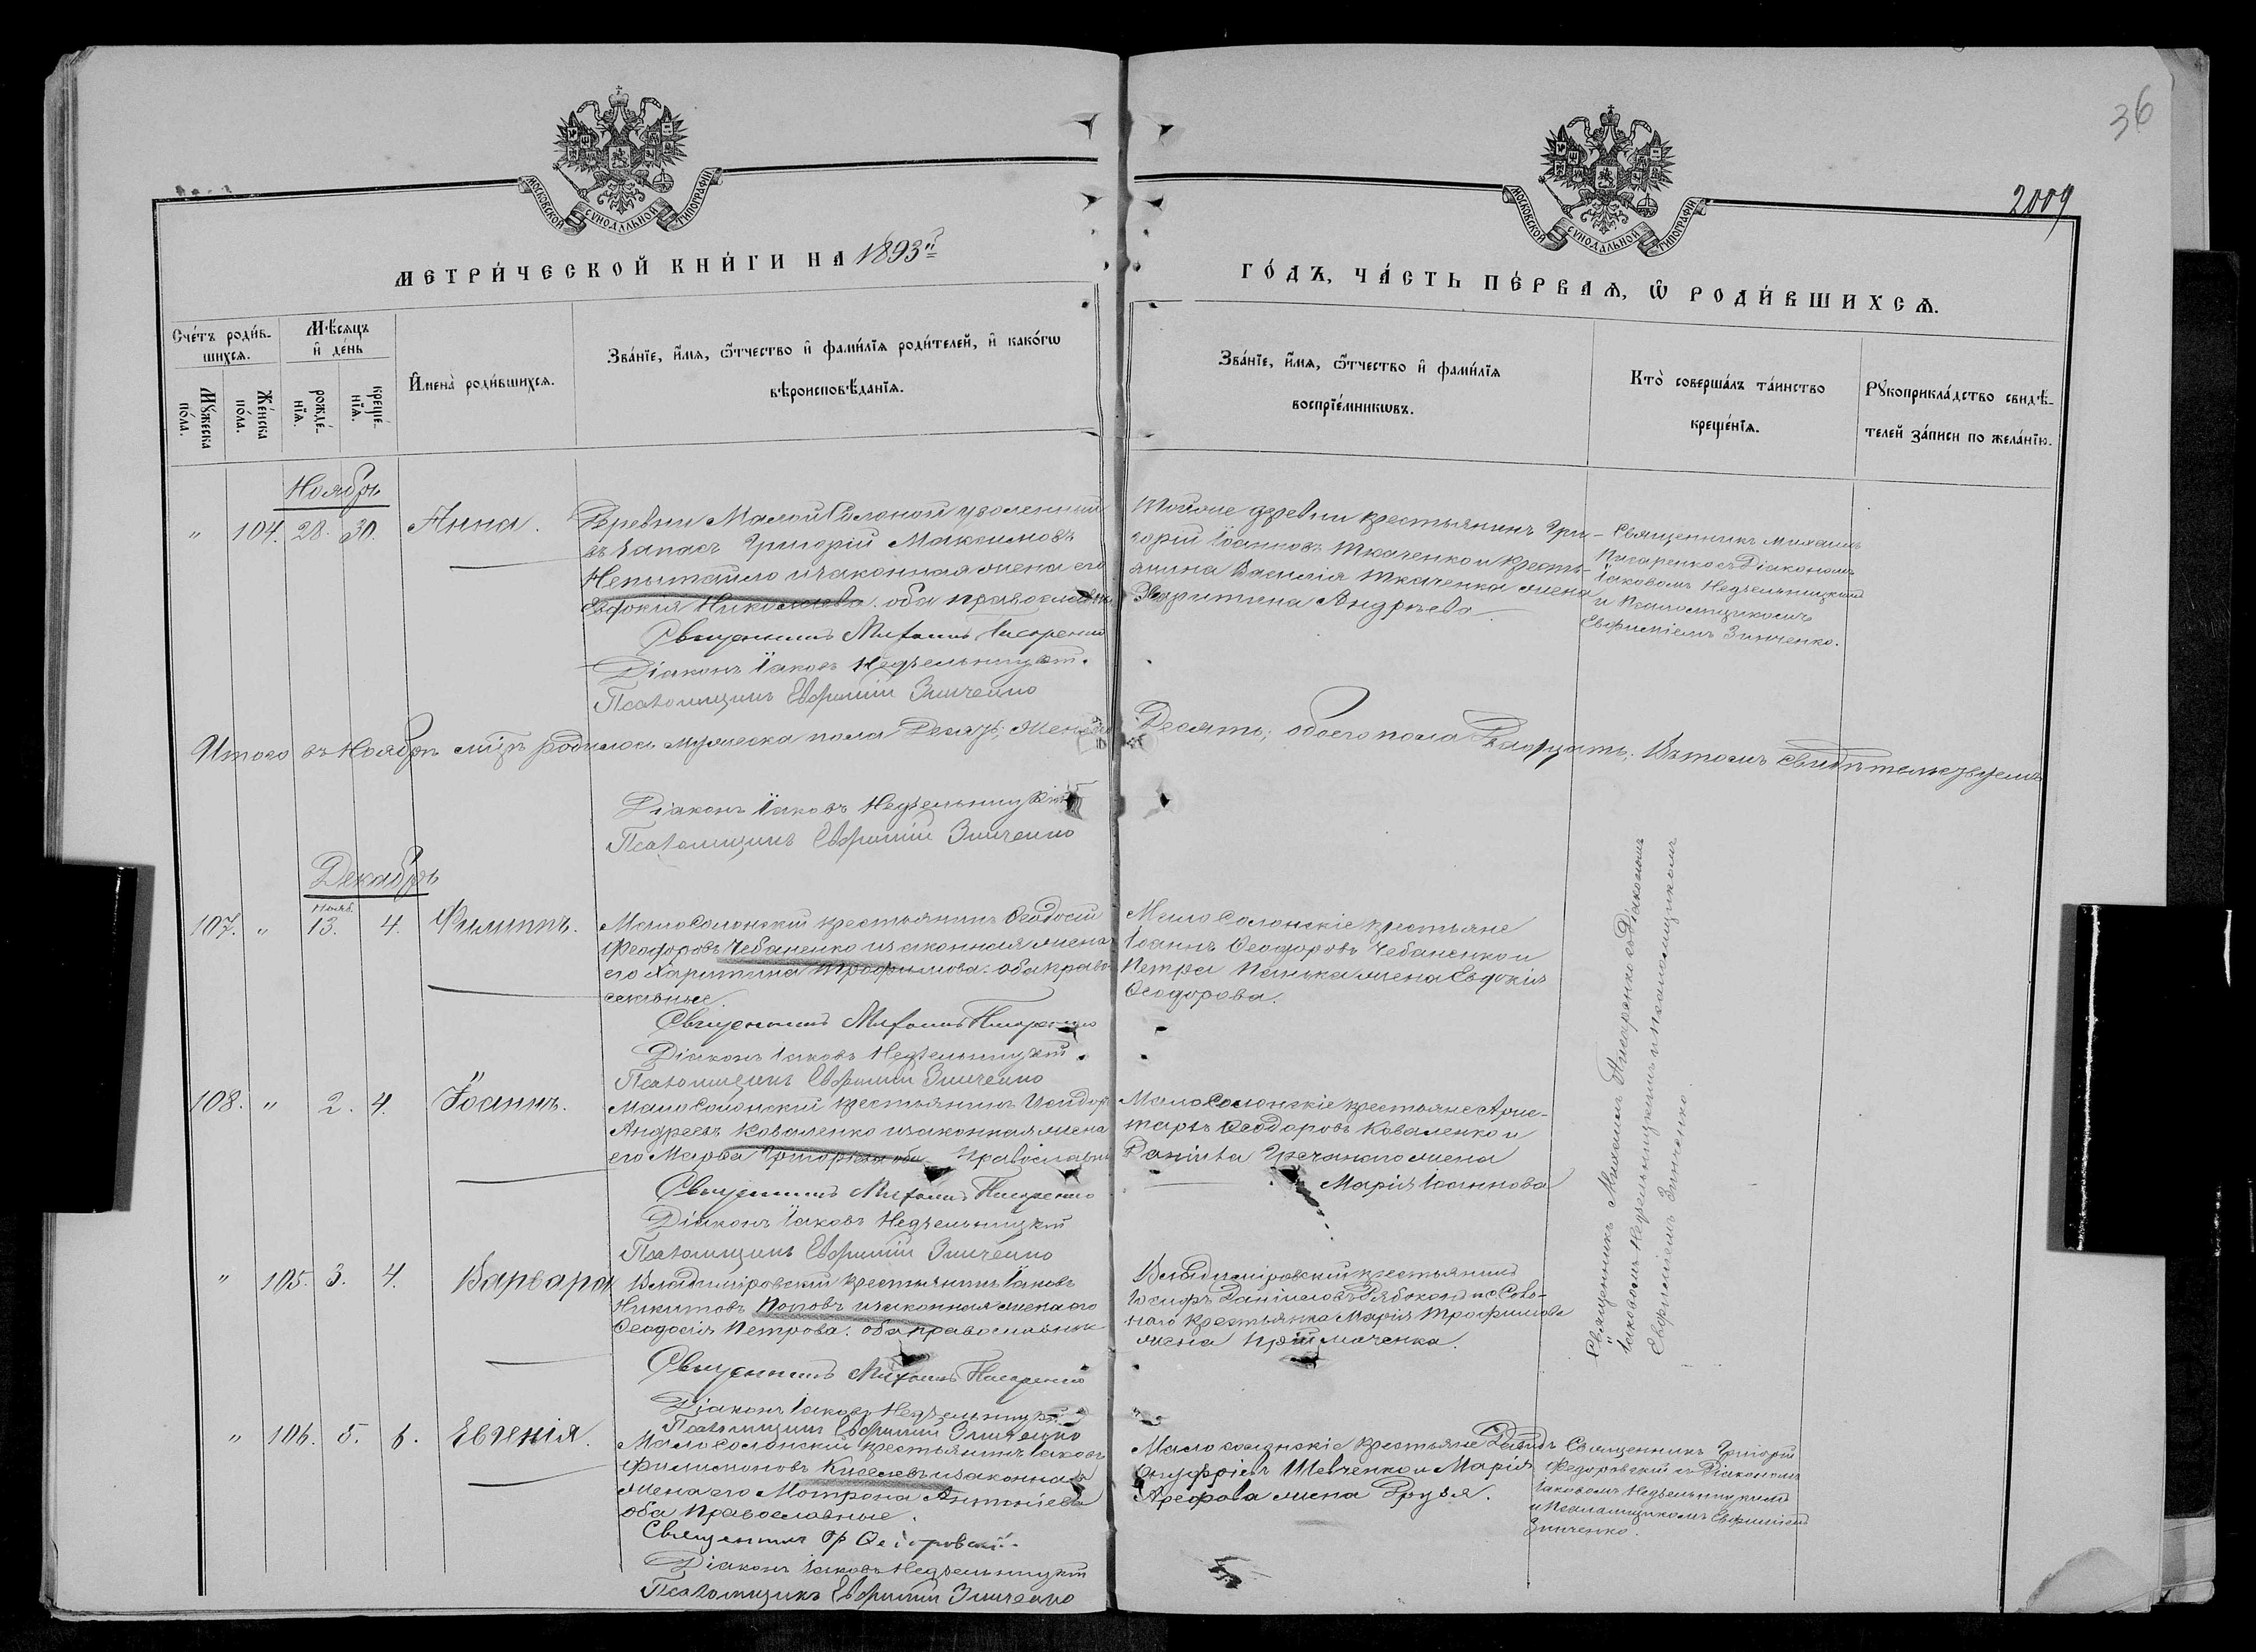 36
2009
МОСКОВСКОЙ СѴНОДАЛЬНОЙ ТИПОГРАФІИ
МОСКОВСКОЙ СѴНОДАЛЬНОЙ ТИПОГРАФІИ
МЕТРИ́ЧЕСКОЙ КНИ́ГИ НА 1893й
ГО́ДЪ, ЧА́СТЬ ПЕ́РВАѦ, Ѡ҆ РОДИ́ВШИХСѦ.
Сче́тъ роди́в-
шихсѧ.
Мꙋ́жеска по́ла.
Же́нска по́ла.
Мѣ́сѧцъ и҆ де́нь
рожде́-нїѧ.
креще́-нїѧ.
И҆мена̀ роди́вшихсѧ.
Зва́нїе, и҆́мѧ, ѻ҆́тчество и҆ фами́лїѧ роди́телей, и҆ како́гѡ
вѣроисповѣ́данїѧ.
Зва́нїе, и҆́мѧ, ѻ҆́тчество и҆ фами́лїѧ
воспрїе́мникѡвъ.
Кто̀ соверша́лъ та́инство
креще́нїѧ.
Рꙋкоприкла́дство свидѣ́-
телей за́писи по жела́нїю.
Ноябрь
" 104. 28. 30. Анна.
Деревни Малой Солоной уволенный
въ запасъ Григорій Максимовъ
Непытайло и законная жена его
Евдокія Николаева. оба православн.
Священникъ Михаилъ Писаренко
Діаконъ Іаковъ Недзельницкій.
Псаломщикъ Евфимій Зинченко
Тойже деревни крестьянинъ Гри-
горій Іоанновъ Ткаченко и кресть-
янина Василія Ткаченка жена
Харитина Андреева.
Священникъ Михаилъ
Писаренко съ Діакономъ
Іаковомъ Недзельницкимъ
и Псаломщикомъ
Евфиміемъ Зинченко.
Итого въ Ноябрѣ мцѣ родилось мужеска пола Десять; женска Десять; обоего пола Двадцать. Въ томъ свидѣтельствуемъ
Діаконъ Іаковъ Недзельницкій
Псаломщикъ Евфимій Зинченко
Декабрь
107. " Нояб. 13. 4. Филиппъ.
Малосолонскій крестьянинъ Ѳеодосій
Феодоровъ Чебаненко и законная жена
его Харитина Трофимова. оба право-
славные.
Священникъ Михаилъ Писаренко
Діаконъ Іаковъ Недзельницкій.
Псаломщикъ Евфимій Зинченко
Малосолонскіе крестьяне
Іоаннъ Ѳеодоровъ Чебаненко и
Петра Панька жена Евдокія
Ѳеодорова.
108. " 2. 4. Іоаннъ.
Малосолонскій крестьянинъ Исидоръ
Андреевъ Коваленко и законная жена
его Марѳа Григорьева оба Православн
Священникъ Михаилъ Писаренко
Діаконъ Іаковъ Недзельницкій
Псаломщикъ Евфимій Зинченко
Малосолонскіе крестьяне Арис-
тархъ Ѳеодоровъ Коваленко и
Даніила Гречаного жена
Марія Іоаннова
" 105. 3. 4. Варвара
Владиміровскій крестьянинъ Іаковъ
Никитовъ Поповъ и законная жена его
Ѳеодосія Петрова. оба православные
Священникъ Михаилъ Писаренко
Діаконъ Іаковъ Недзельницкій
Псаломщикъ Евфимій Зинченко
Владиміровскій крестьянинъ
Іосифъ Даніиловъ Рябоконь и с. Соло-
наго крестьянка Марія Трофимова
жена Прыймаченка.
Священникъ Михаилъ Писаренко съ Діакономъ
Іаковомъ Недзельницкимъ и Псаломщикомъ
Евфиміемъ Зинченко.
" 106. 5. 6. Евгенія.
Малосолонскій крестьянинъ Іаковъ
Филимоновъ Киселевъ и законная
жена его Мотрона Антоніева
оба Православные.
Священникъ Гр Ѳедоровскій.
Діаконъ Іаковъ Недзельницкій
Псаломщикъ Евфимій Зинченко
Малосолонскіе крестьяне Давидъ
Онуфріевъ Шевченко и Марія
Арефова жена Друзя.
Священникъ Григорій
Федоровскій съ Діакономъ
Іаковомъ Недзельницкимъ
и Псаломщикомъ Евфиміемъ
Зинченко.